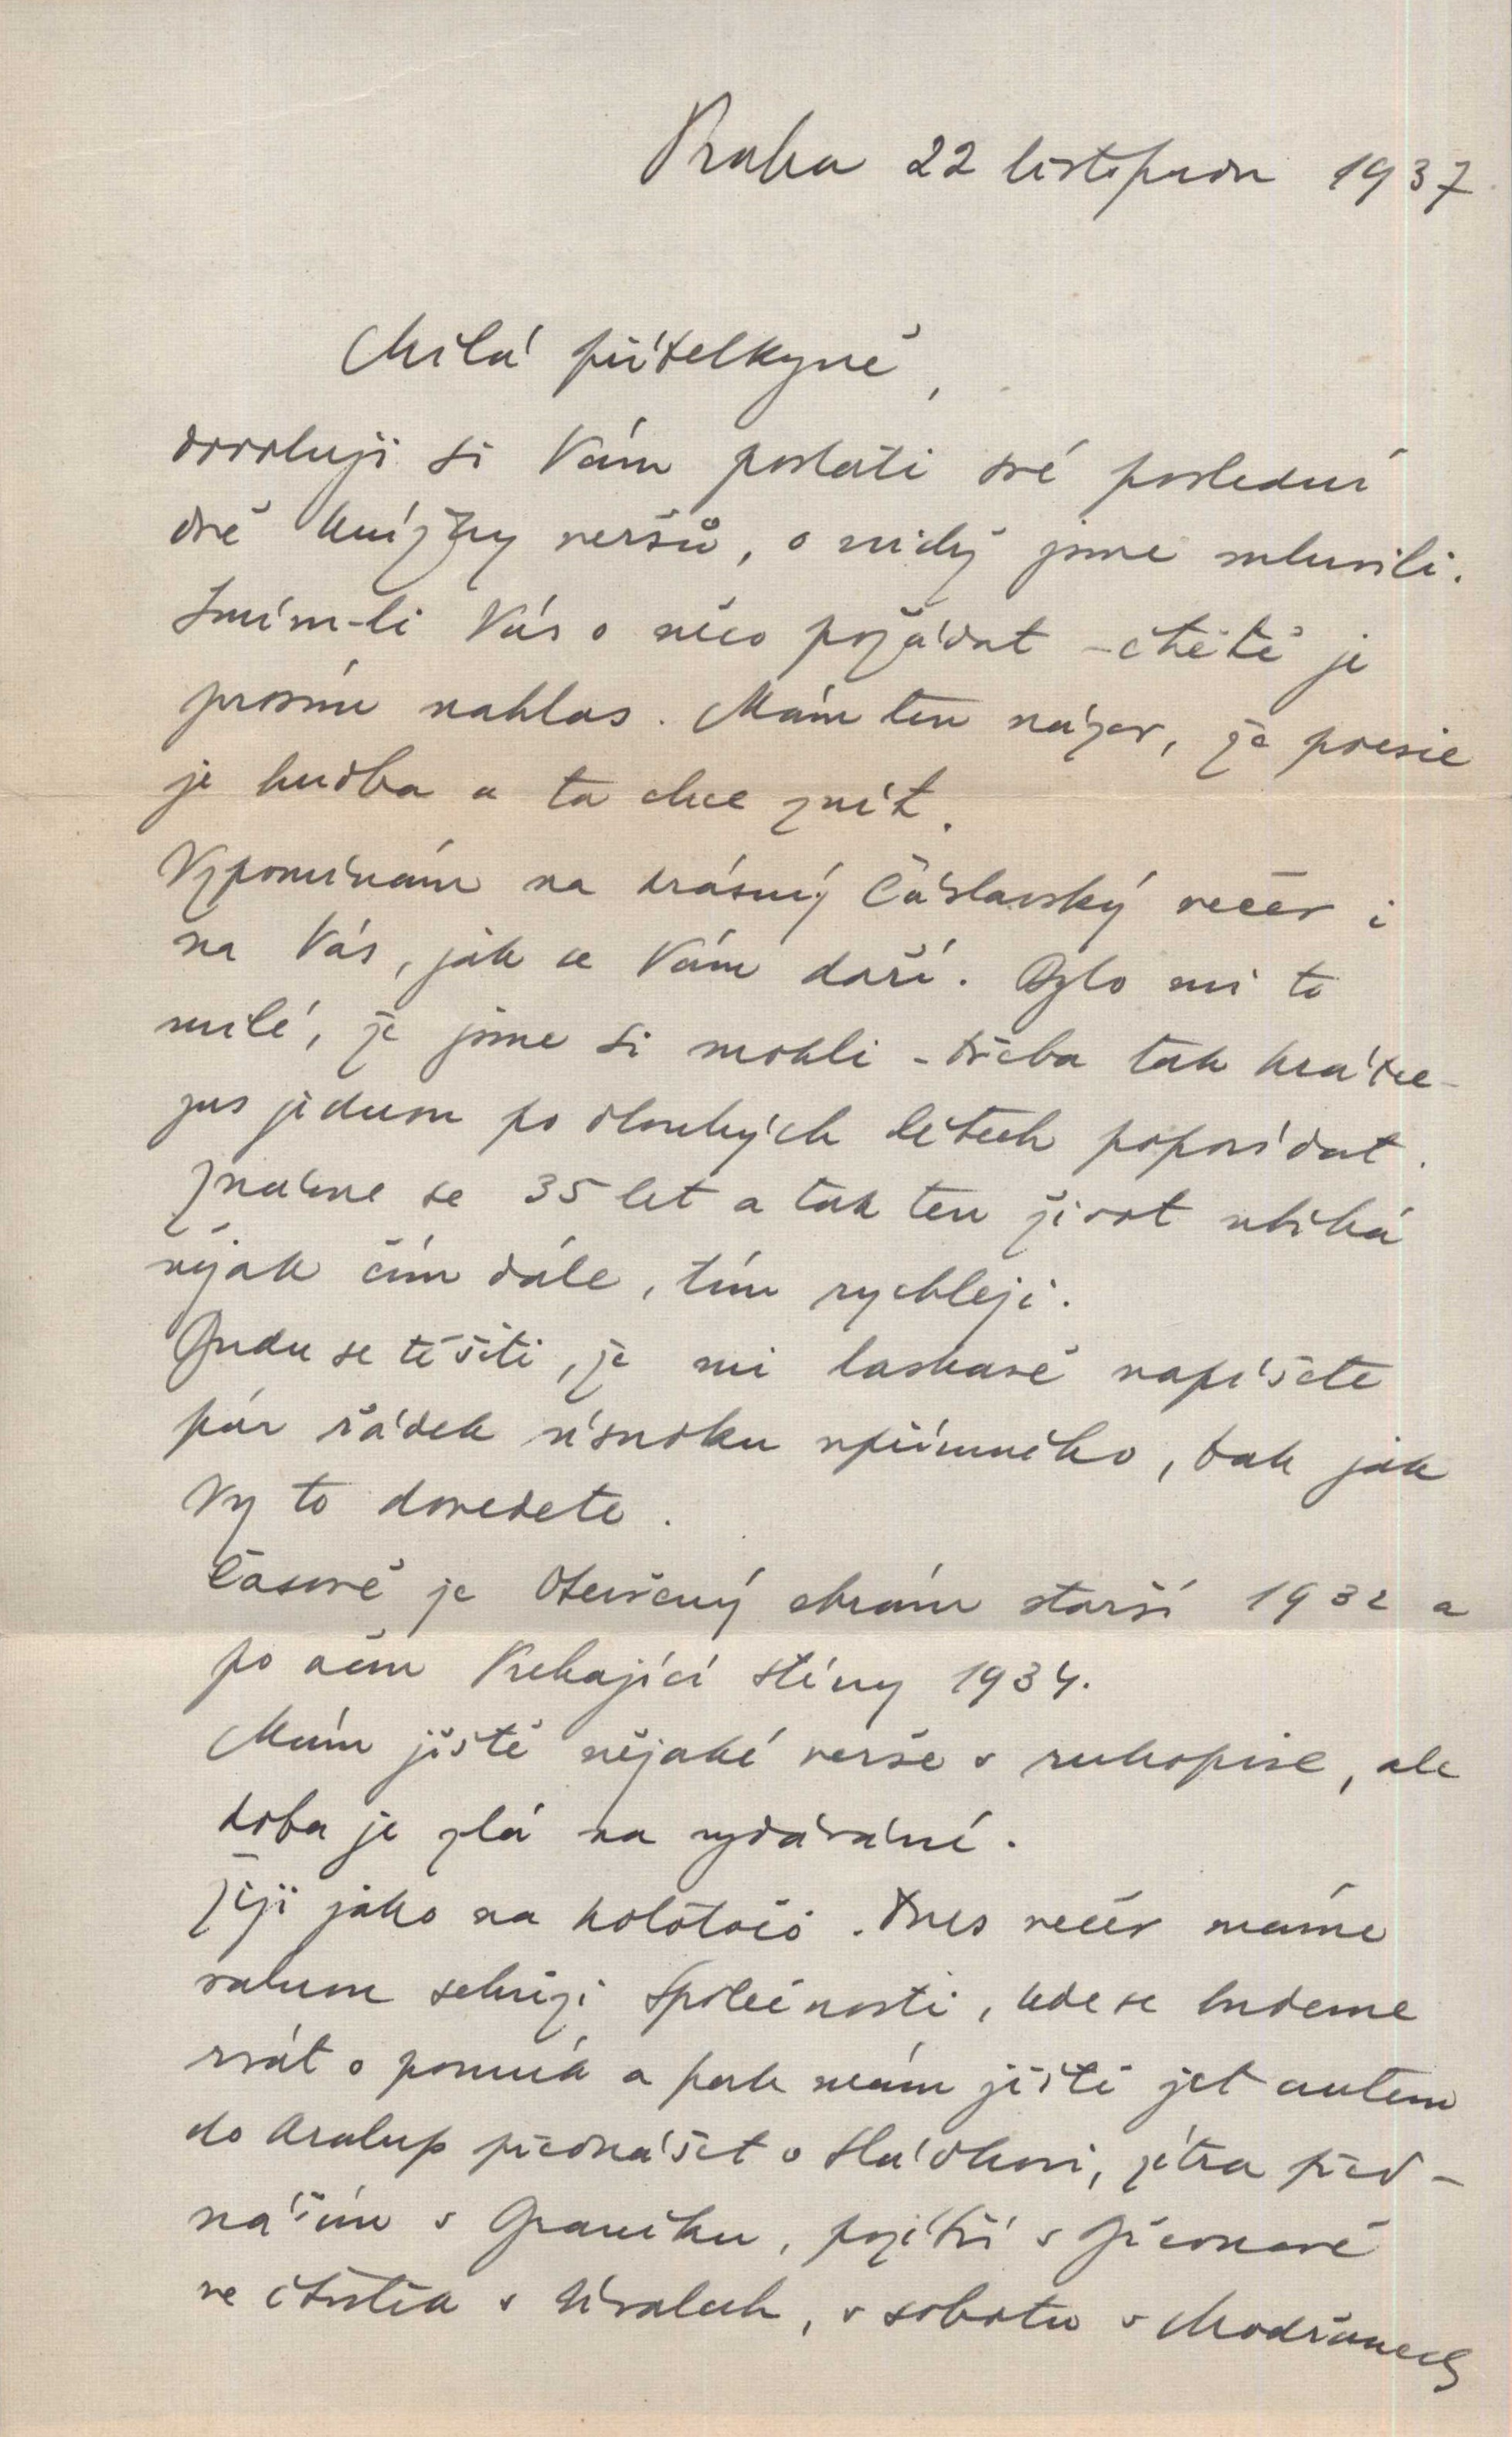 Praha 22 listopadu 1937
Milá přítelkyně,
dovoluji si Vám poslati své poslední
dvě knížky veršů, o nichž jsme mluvili.
Smím-li Vás o něco požádat – čtěte je
prosím nahlas. Mám ten názor, že poesie
je hudba a ta chce znít.
Vzpomínám na krásný Čáslavský večer i
na Vás, jak se Vám daří. Bylo mi to
milé, že jsme si mohli – třeba tak krátce –
zas jednou po dlouhých letech popovídat.
Známe se 35 let a tak ten život utíká
nějak čím dále, tím rychleji.
Budu se těšiti, že mi laskavě napíšete
pár řádek úsudku upřímného, tak jak
Vy to dovedete.
Časově je Otevřený chrám starší 1932 a
po něm Prchající stíny 1934.
Mám ještě nějaké verše v rukopise, ale
doba je zlá na vydávání.
Žiji jako na kolotoči. Dnes večer máme
valnou schůzi Společnosti, kde se budeme
rvát o pomník a pak mám ještě jet autem
do Kralup přednášet o Sládkovi, zítra před-
náším v Braníku, pozítří v Břevnově
ve čtvrtek v Úvalech, v sobotu v Modřanech